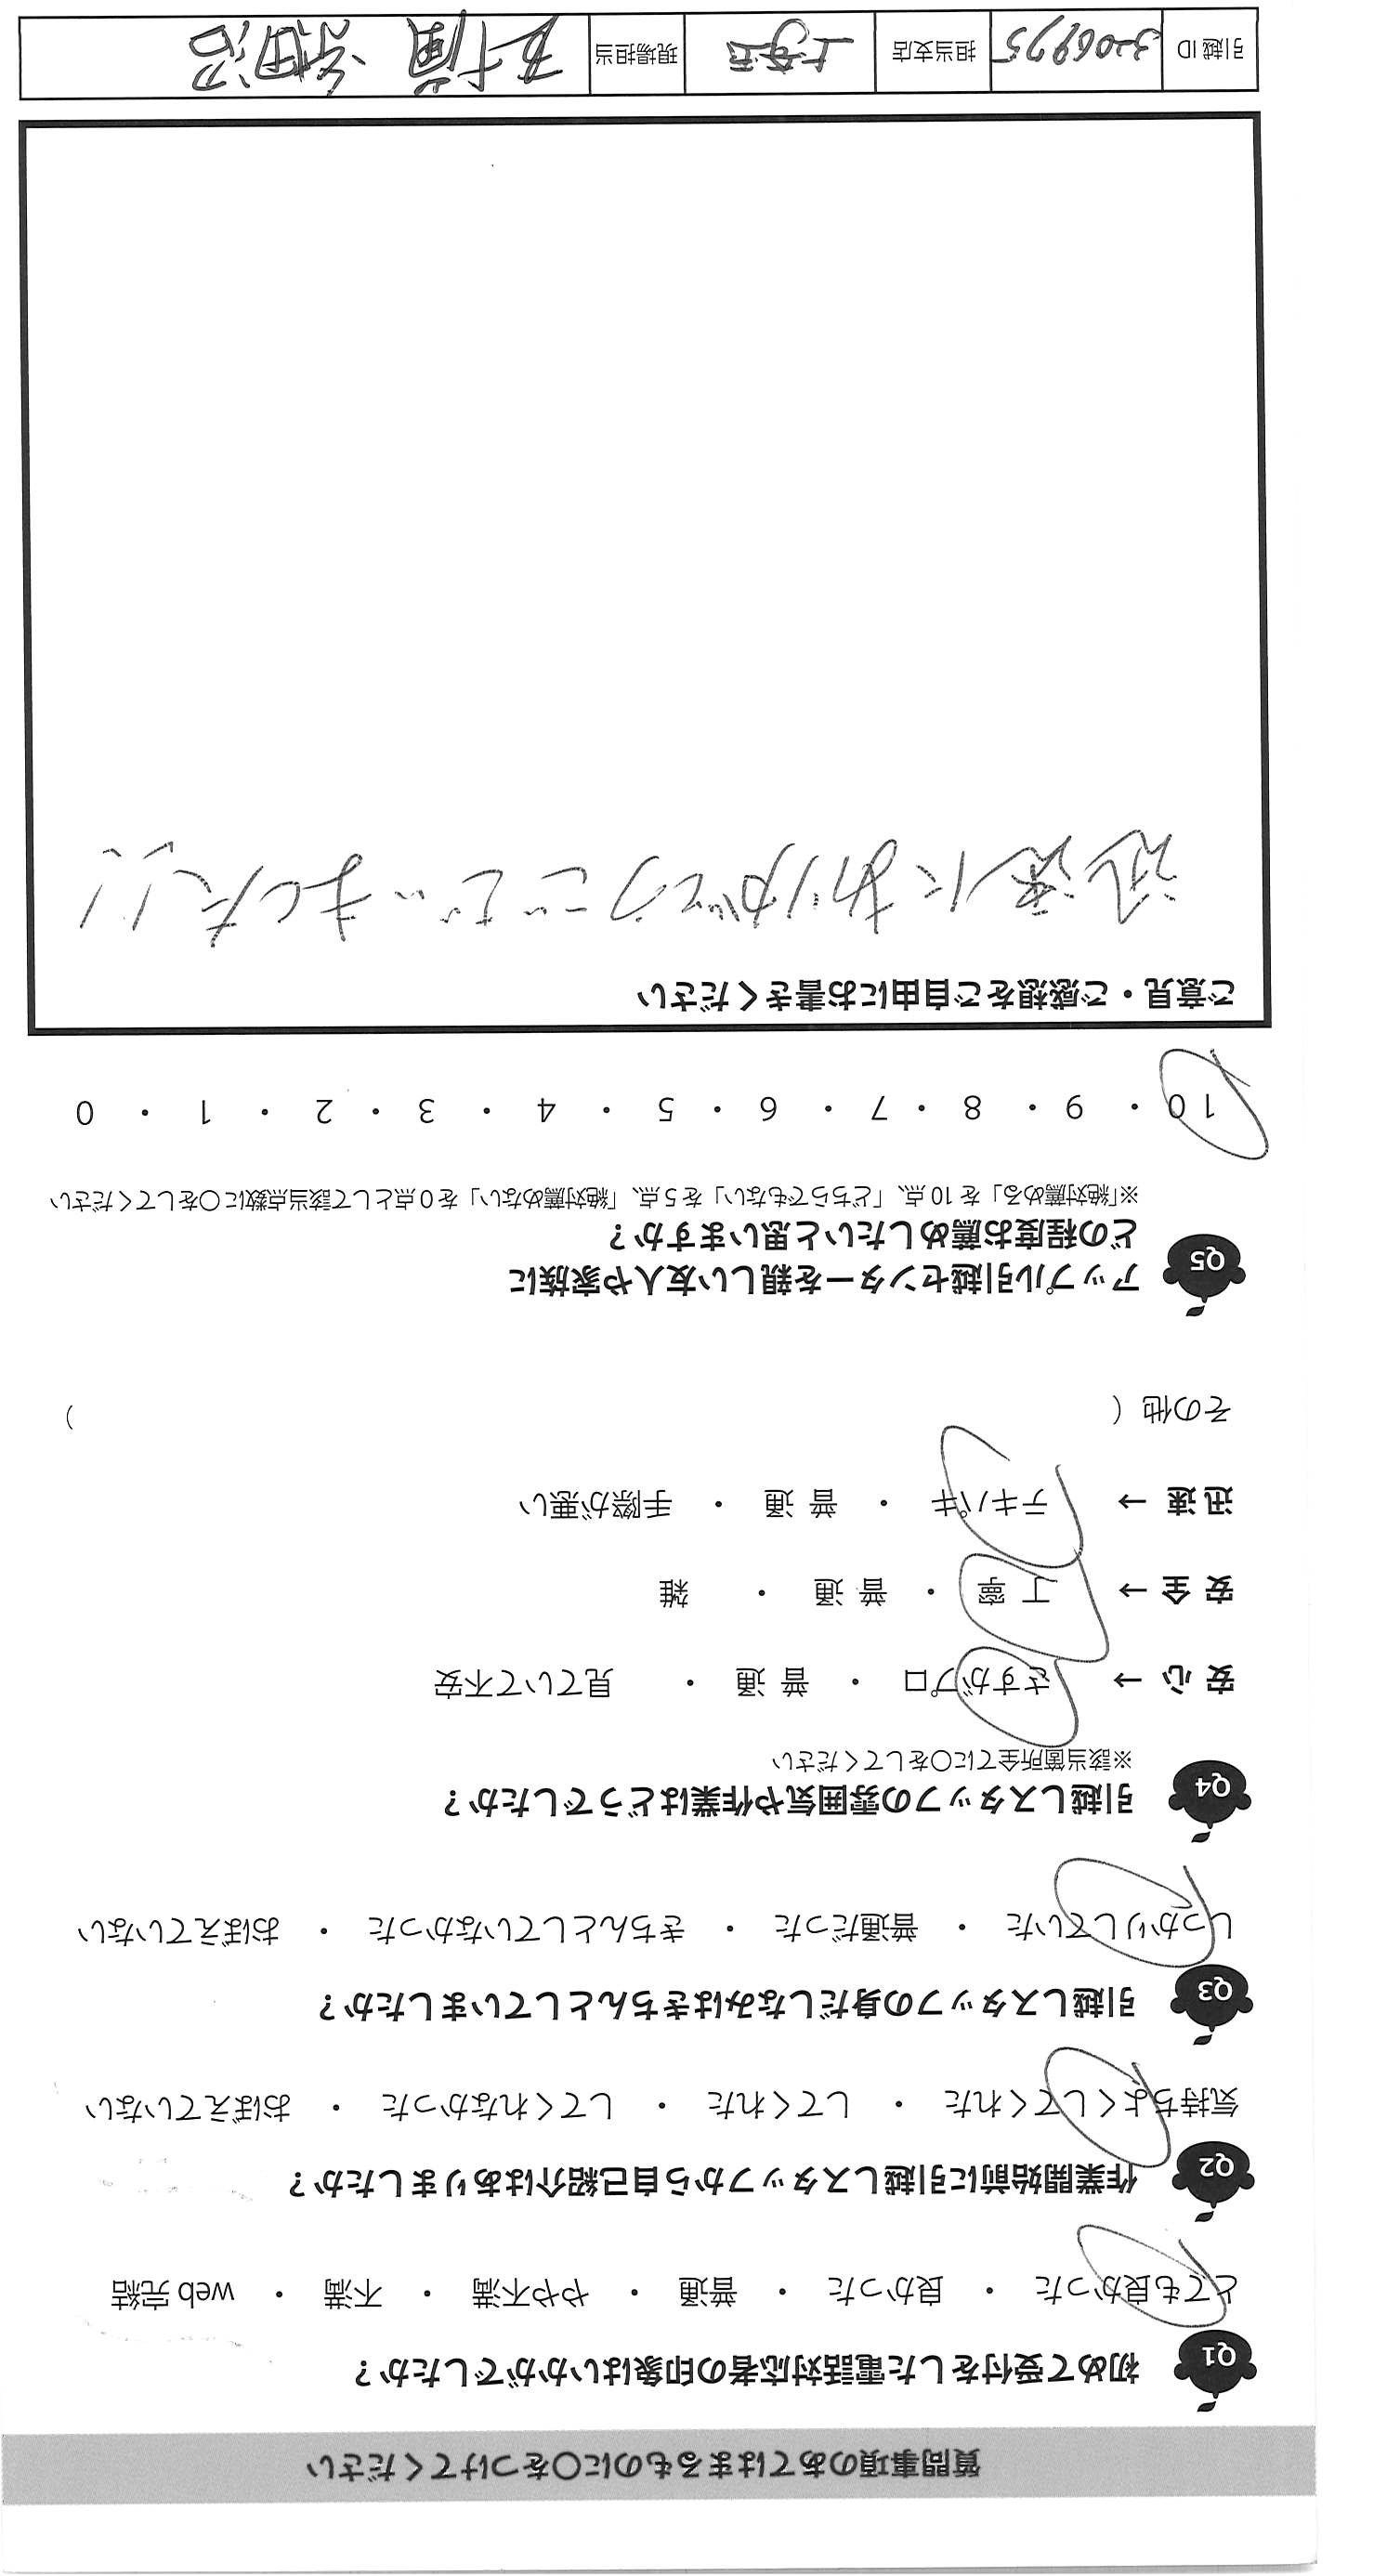 質問事項のあてはまるものに〇をつけてください
Q1 初めて受付をした電話対応者の印象はいかがでしたか？
とても良かった ・ 良かった ・ 普通 ・ やや不満 ・ 不満 ・ web 完結
Q2 作業開始前に引越しスタッフから自己紹介はありましたか？
気持ちよくしてくれた ・ してくれた ・ してくれなかった ・ おぼえていない
Q3 引越しスタッフの身だしなみはきちんとしていましたか？
しっかりしていた ・ 普通だった ・ きちんとしていなかった ・ おぼえていない
Q4 引越しスタッフの雰囲気や作業はどうでしたか？
※該当箇所全てに〇をしてください
安 心 → さすがプロ ・ 普 通 ・ 見ていて不安
安 全 → 丁 寧 ・ 普 通 ・ 雑
迅 速 → テキパキ ・ 普 通 ・ 手際が悪い
その他（ ）
Q5 アップル引越センターを親しい友人や家族に
どの程度お薦めしたいと思いますか？
※「絶対薦める」を 10 点、「どちらでもない」を 5 点、「絶対薦めない」を 0 点として該当点数に〇をしてください
10 ・ 9 ・ 8 ・ 7 ・ 6 ・ 5 ・ 4 ・ 3 ・ 2 ・ 1 ・ 0
ご意見・ご感想をご自由にお書きください
迅速にありがとうございました!!
引越 ID 3206975 担当支店 現場担当 細沼